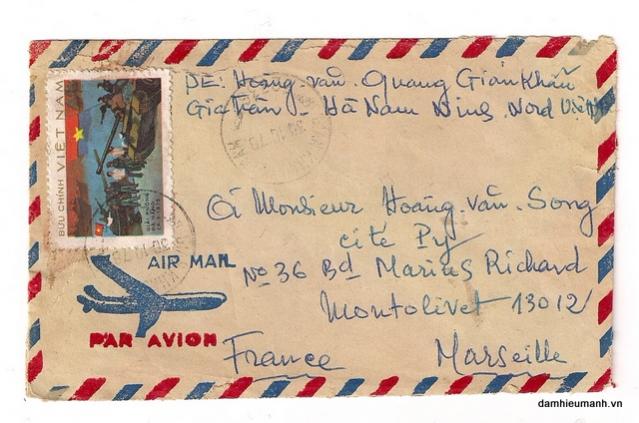 DE: Hoàng văn Quang Gián Khẩu
Gia Viễn - Hà Nam Ninh, Nord Việt
BƯU CHÍNH VIỆT NAM
à Monsieur Hoàng văn Song
cité Py
AIR MAIL
No 36 Bd Marius Richard
Montolivet 13012
PAR AVION
France Marseille
damhieumanh.vn